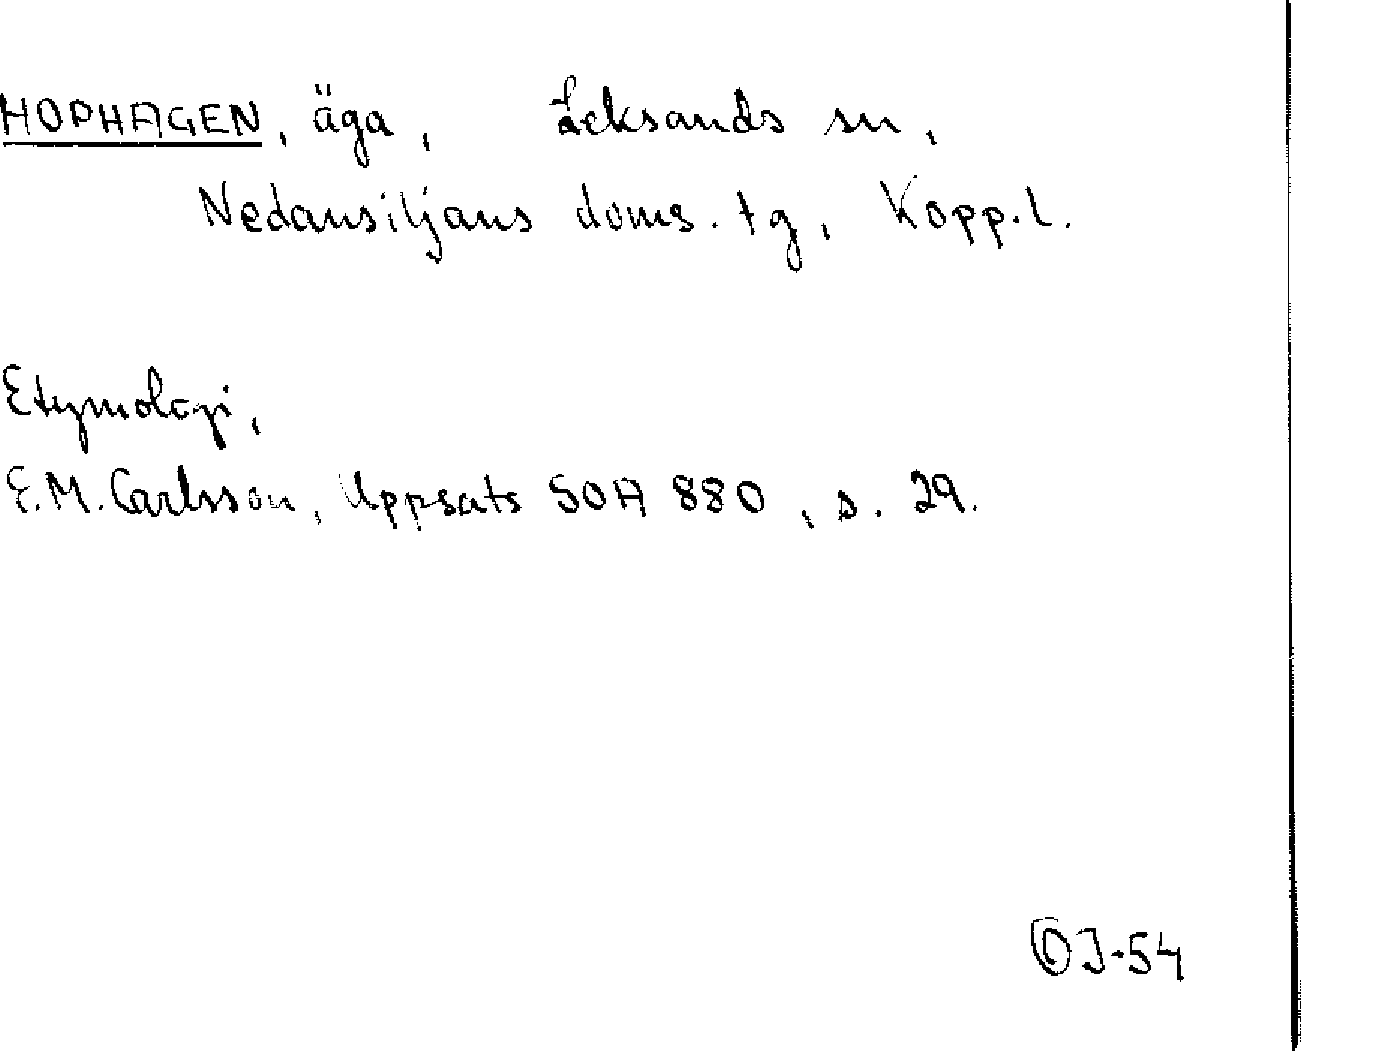 HOPHAGEN, äga, Leksands sn,
Nedansiljans doms. tg, Kopp. l.
Etymologi,
E.M. Carlsson, Uppsats SOA 880, s. 29.
OJ-54